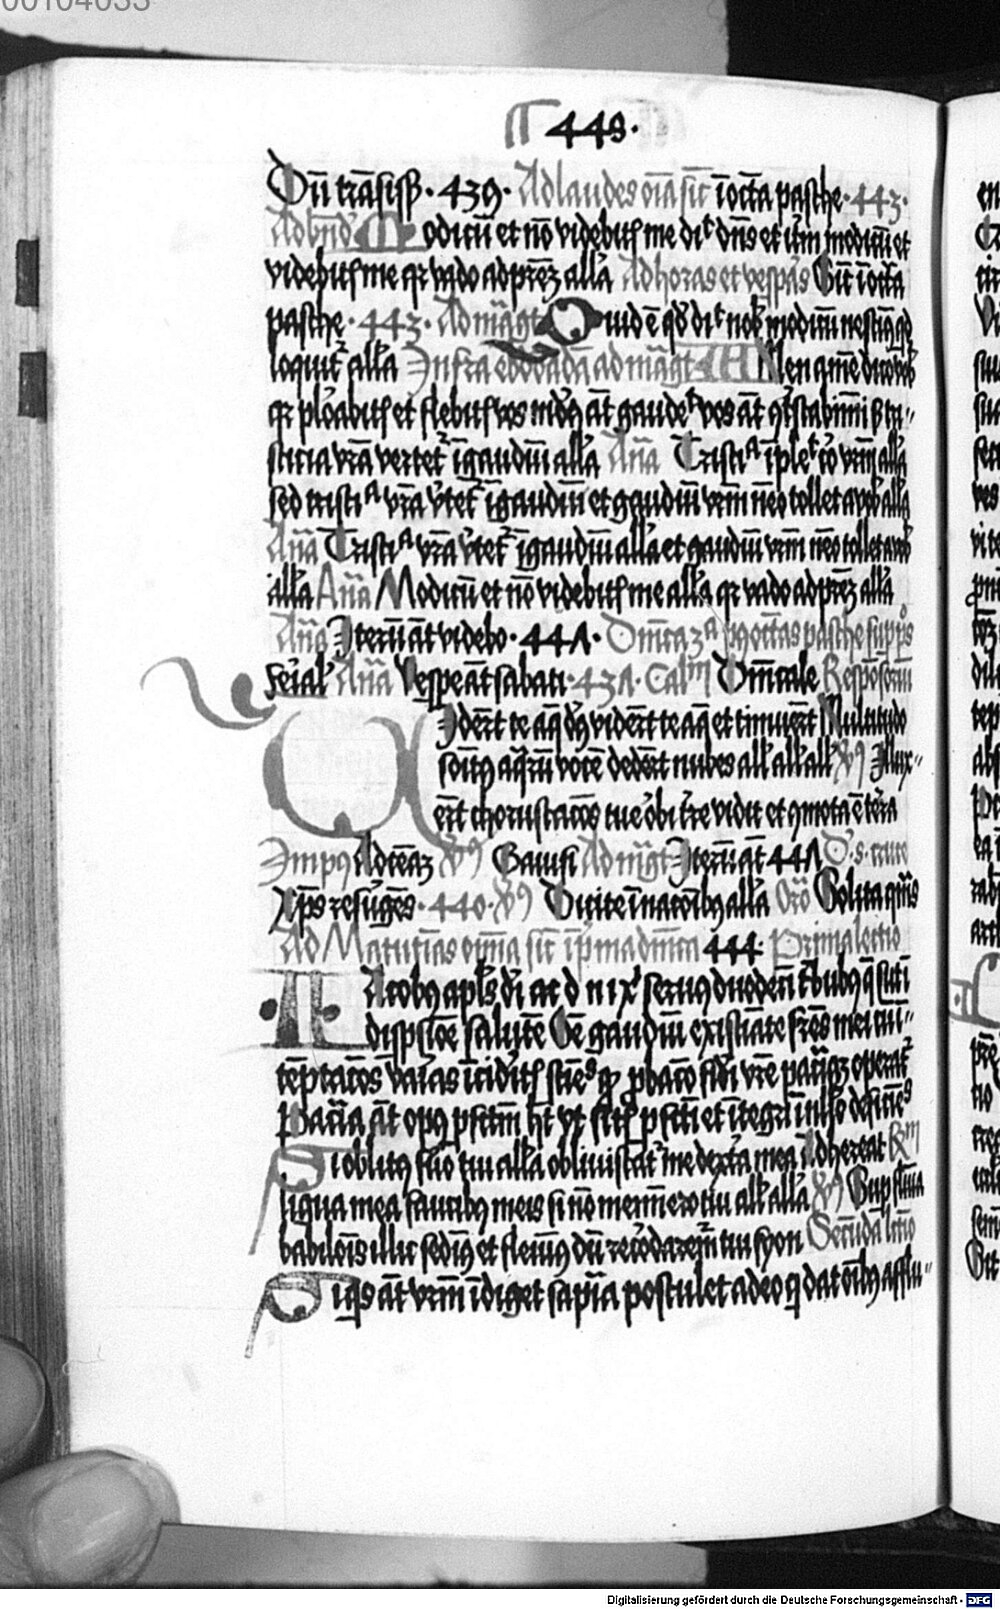 00104033
449.
Dū trāsiss̄. 439. Ad laudes oīa sic̄ ī octa pasche. 443.
Ad bn̄d Modicū et nō videbitis me dic̄ dn̄s et itm̄ modicū et
videbitis me qr vado ad prēz alla Ad horas et vesp̄as Sic̄ ī octa
pasche. 443. Ad māgt Quid ē qd̄ dic̄ nob̄ modicū nescim̄ qd
loquit̄ alla Infra ebdōadā ad māgt Amen amē dico vob̄
qr plōabitis et flebitis vos mūd9 at̄ gaudet vos at̄ 9tstabimī s; tri-
sticia vr̄a vertet̄ ī gaudiū alla Añā Tristia īplet cor vrm̄ alla
sed tristia vr̄a v̄tet̄ ī gaudiū et gaudiū vrm̄ nēo tollet a vob̄ alla
Añā Tristia vr̄a v̄tet̄ ī gaudiū alla et gaudiū vrm̄ nēo tollet a vob̄
alla Añā Modicū et nō videbitis me alla qr vado ad prēz alla
Añā Iterū at̄ videbo. 441. Dn̄ica 3a p9 octas pasche supp̄s
ferial Añā Vespe at̄ sabati. 431. Calm Dn̄icale Respōsoriū
Vidert̄ te aq̄ d9 vidert̄ te aq̄ et timuert̄ Multitudo
soit9 aqrū vocē dedert̄ nubes all all all V9 Illux-
ert̄ choruscacōs tue orbi tr̄e vidit et 9mota ē terra
Imp9 Ad cēaz V9 Gauisi Ad māgt Iterū at̄ 441 D. s. cruce
Xp̄s resūgēs. 440. V9 Dicite ī nacōib9 alla Orō Solita qm̄s
Ad Matutīas om̄ia sic̄ ī pīma dn̄ica 444. Prima lectio
Iacob9 apls dī ac d n i x serv9 duodeci tribub9 q̄ sūt ī
dispsiōe salutē Oē gaudiū existīate fr̄es mei cū ī
tēptacōs varias īcidit9 sciēs qd pbacō fidī vr̄e paciāz operat̄
Pacia at̄ op9 pfctm̄ ht̄ vt sitis pfcti et ītegri ī nullo deficiēs
Si oblit9 fuo tui alla obliuiscat̄ me dextā mea Adhereat Rm
ligua mea faucib9 meis si nō memīero tui all alla V9 Sup flūīa
babilōis illic sedim9 et fleuim9 dū recordarem̄ tui syon Secūda lc̄io
Siqs at̄ vrm̄ ī diget sapīa postulet a deo q dat oīb9 afflu-
Digitalisierung gefördert durch die Deutsche Forschungsgemeinschaft - DFG